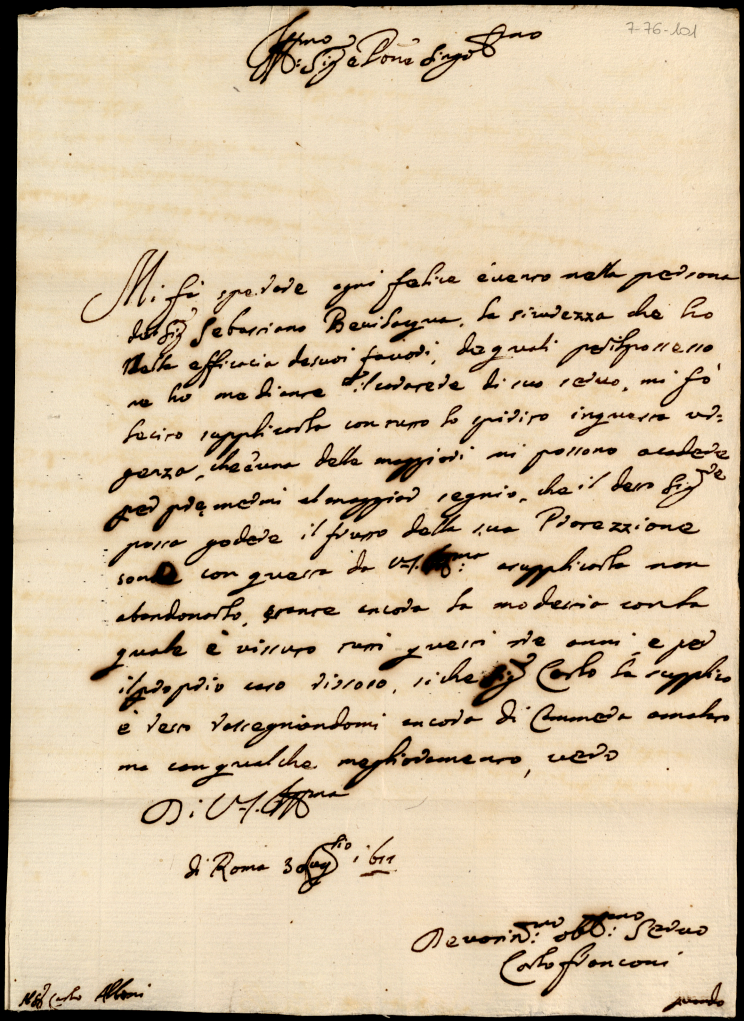 7-76-101
Ill:mo Sig:r e Pron Sing:mo
Mi fà sperare ogni felice evento nella persona
del Sig:r Sebastiano Bevilacqua, la sicurezza che ho
nella efficacia de suoi favori, de quali per il possesso
ne ho mediante il carattere di suo servo, mi fò
lecito supplicarla con tutto lo spirito in questa ur=
genza, che è una delle maggiori mi possono accadere
per premermi al maggior segnio, che il detto Sig:re
possa godere il frutto della sua Protezzione
con questa da V.S. Ill:ma a supplicarla non
abandonarlo, stante ancora la modestia con la
quale è vissuto tutti questi tre anni, e per
il proprio caso, si che Sig:r Carlo la supplico
e resto rassegniandomi ancora di Cammera amalato
ma con qualche megliòramento, vero
Di V.S. Ill:ma
di Roma 30
Devotis:mo obb:mo Servo
Carlo Franconi
Carlo Albani